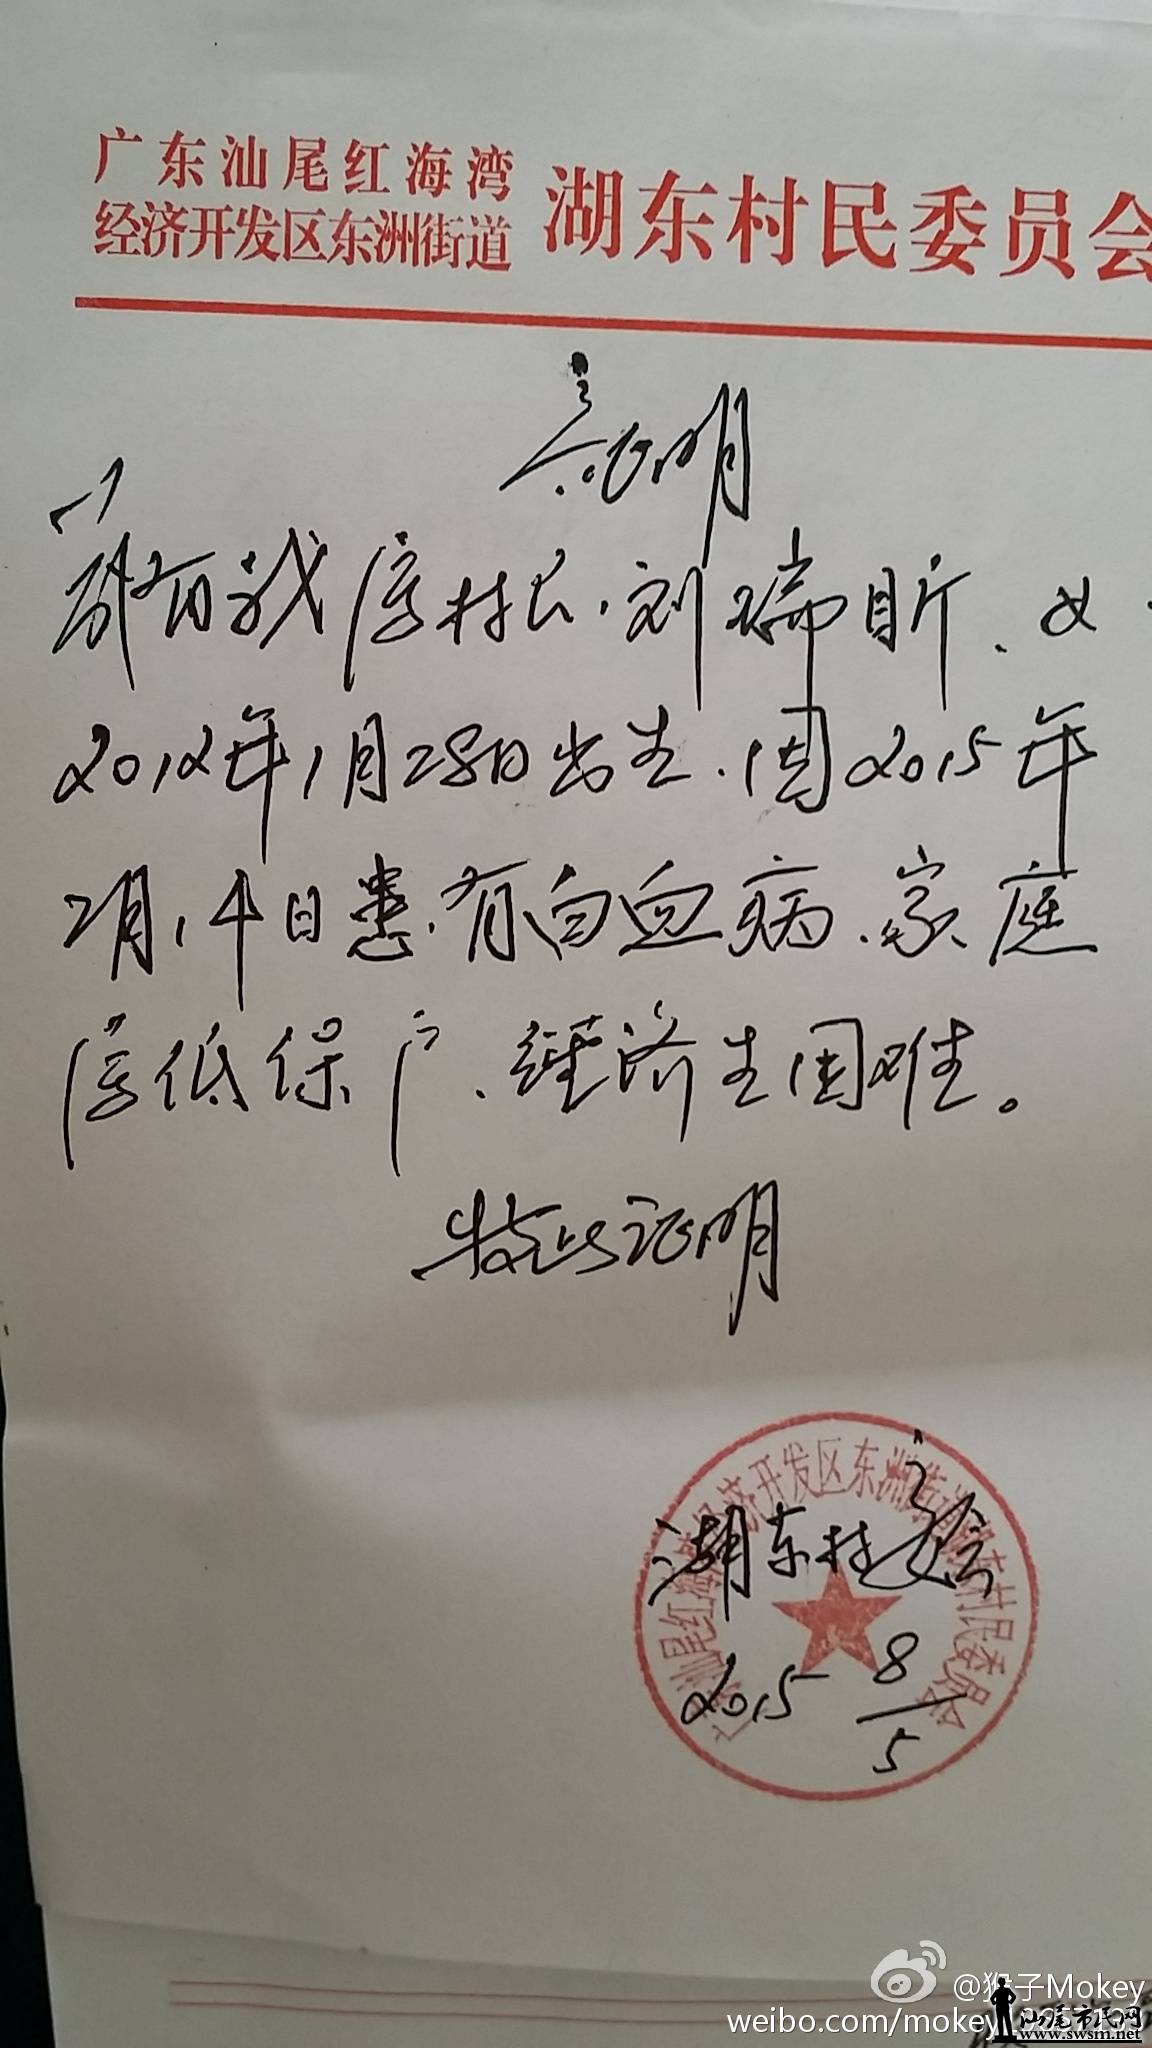 广东汕尾红海湾
经济开发区东洲街道 湖东村民委员会
证明
兹有我居村民,刘瑞昕、女
2012年1月28日出生.因2015年
2月14日患有白血病、家庭
居低保户、经济生困难。
特此证明
汕尾红海湾经济开发区东洲街道湖东村民委员会
湖东村委会
2015 8/5
@猴子Mokey
汕尾市民网
www.swsm.net